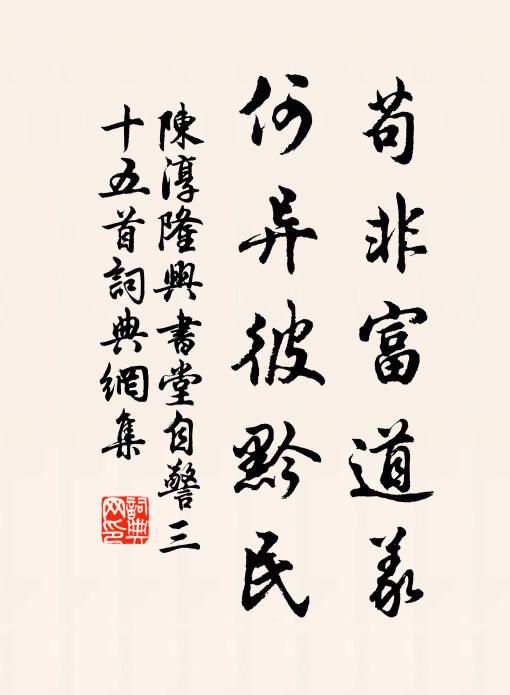 苟非富道义
何异彼黔民
陳淳隆興書堂自警三
十五首詞典網集
詞典
网印